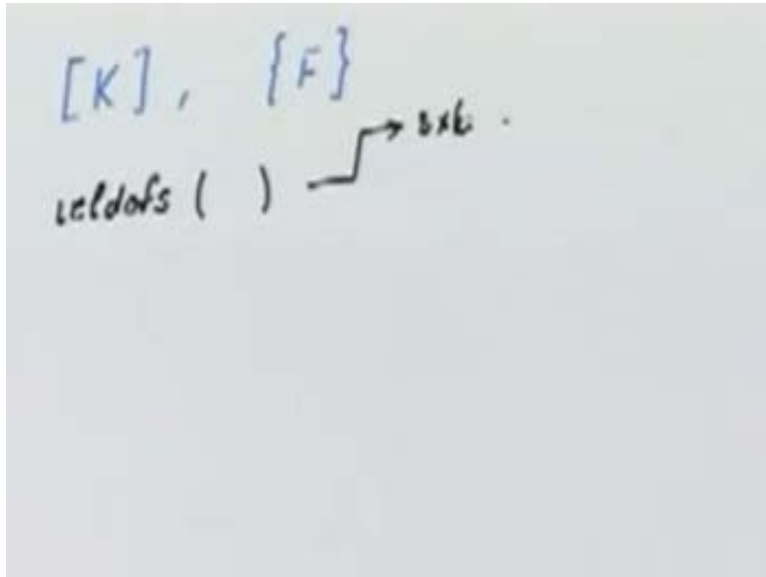 [K], {F}
ieldofs ( )